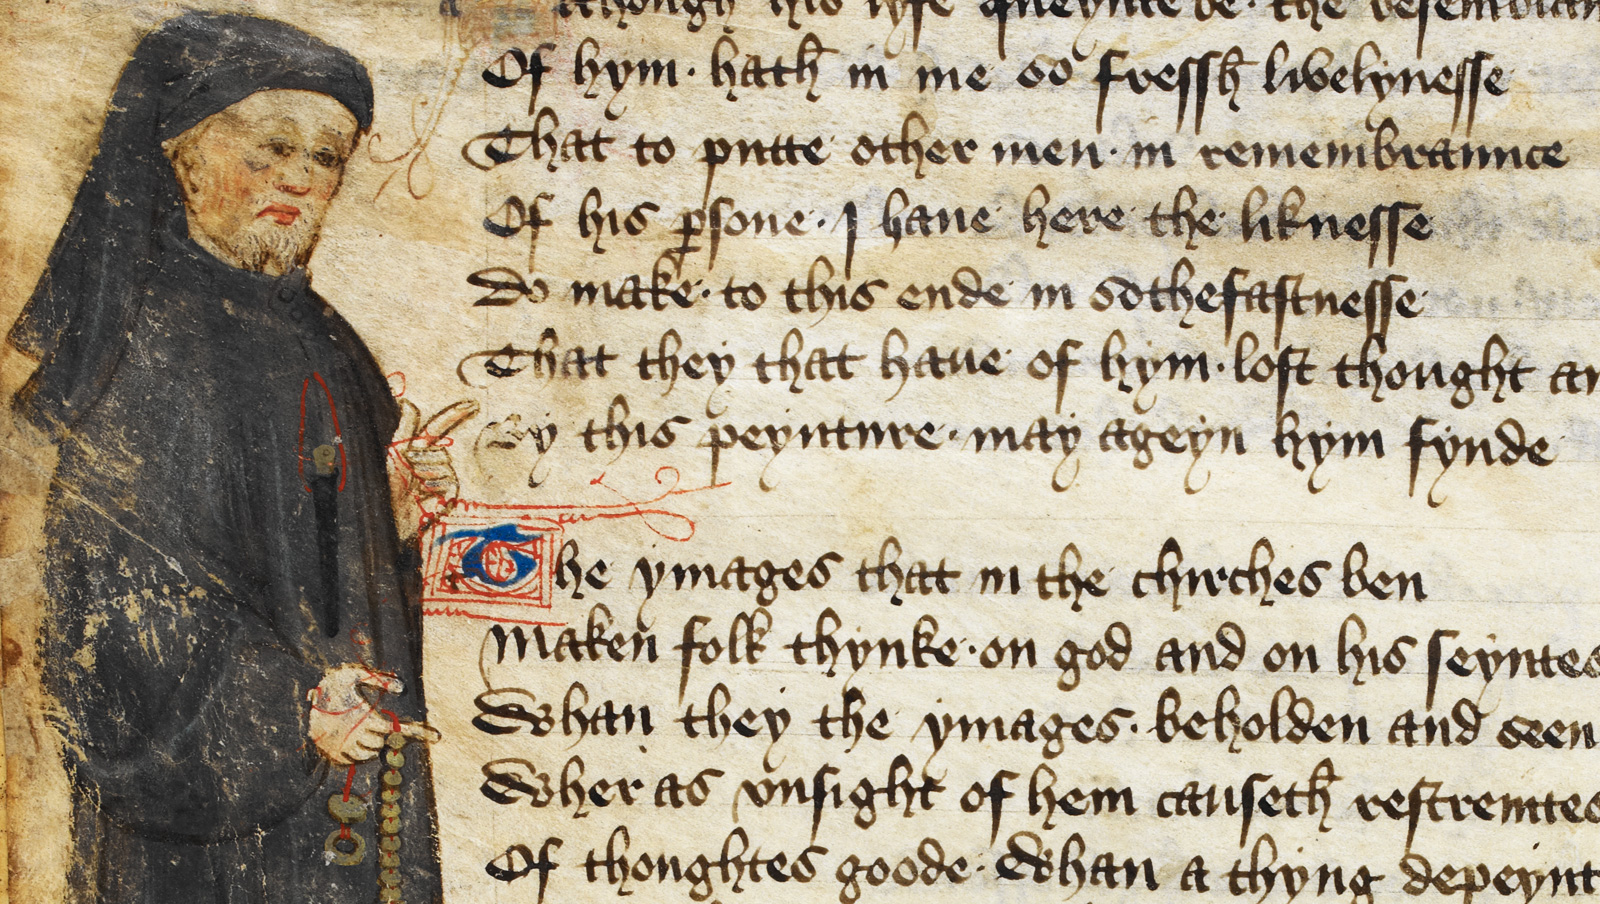 Al though his lyfe queynte be the resemblan
Of hym · hath in me so fressh lyvelynesse
That to putte other men · in remembraunce
Of his psone · I haue here the liknesse
Do make · to this ende in sothefastnesse
That they that haue of hym · lost thought an
By this peynture · may ageyn hym fynde
The ymages that in the chirches ben
Maken folk thynke · on god and on his seyntes
Whan they the ymages · beholden and seen
Wher as vnsight of hem causeth restreintes
Of thoughtes goode · Whan a thyng depeynt